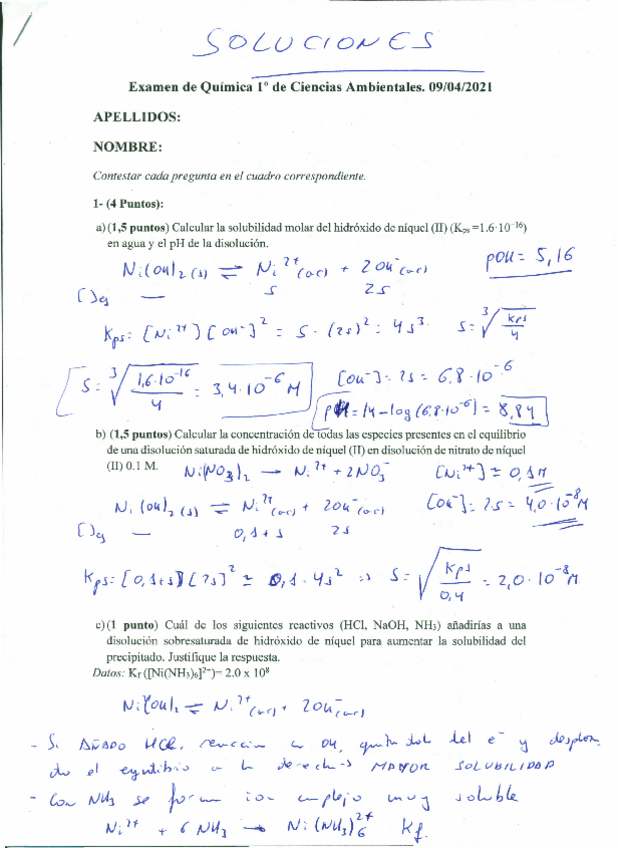 SOLUCIONES
Examen de Química 1º de Ciencias Ambientales. 09/04/2021
APELLIDOS:
NOMBRE:
Contestar cada pregunta en el cuadro correspondiente.
1- (4 Puntos):
a) (1,5 puntos) Calcular la solubilidad molar del hidróxido de níquel (II) (Kps =1.6·10⁻¹⁶)
en agua y el pH de la disolución.
pOH = 5,16
Ni(OH)₂ (s) ⇌ Ni²⁺(ac) + 2OH⁻(ac)
[ ]eq — s 2s
Kps = [Ni²⁺][OH⁻]² = s·(2s)² = 4s³ s = ∛(Kps/4)
s = ∛(1,6·10⁻¹⁶/4) = 3,4·10⁻⁶ M [OH⁻] = 2s = 6,8·10⁻⁶
pH = 14 - log (6,8·10⁻⁶) = 8,84
b) (1,5 puntos) Calcular la concentración de todas las especies presentes en el equilibrio
de una disolución saturada de hidróxido de níquel (II) en disolución de nitrato de níquel
(II) 0.1 M. Ni(NO₃)₂ → Ni²⁺ + 2NO₃⁻ [Ni²⁺] ≃ 0,1 M
Ni(OH)₂ (s) ⇌ Ni²⁺(ac) + 2OH⁻(ac) [OH⁻] = 2s = 4,0·10⁻⁸ M
[ ]eq — 0,1+s 2s
Kps = [0,1+s][2s]² ≃ 0,1·4s² ⇒ s = √(Kps/0,4) = 2,0·10⁻⁸ M
c) (1 punto) Cuál de los siguientes reactivos (HCl, NaOH, NH₃) añadirías a una
disolución sobresaturada de hidróxido de níquel para aumentar la solubilidad del
precipitado. Justifique la respuesta.
Datos: Kf ([Ni(NH₃)₆]²⁻)= 2.0 x 10⁸
Ni(OH)₂ ⇌ Ni²⁺(ac) + 2OH⁻(ac)
- Si AÑADO HCl, reacciona OH, del y
do el equilibrio a la derecha → MAYOR SOLUBILIDAD
- Con NH₃ se forma ion complejo muy soluble
Ni²⁺ + 6 NH₃ → Ni(NH₃)₆²⁺ Kf.